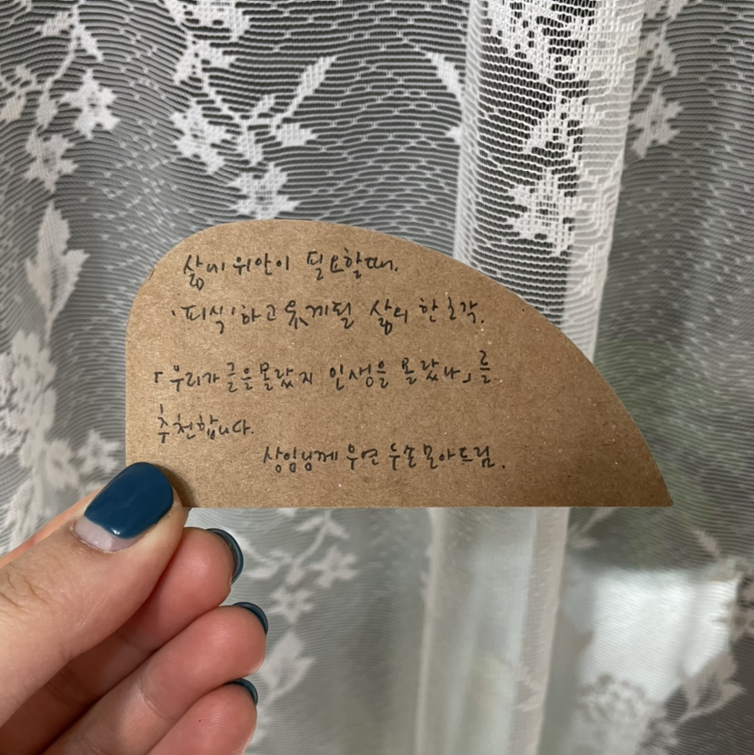 삶에 위안이 필요할때.
'피식'하고 웃게될 삶의 한조각.
「우리가 글을몰랐지 인생을 몰랐나」를
추천합니다.
상임님께 우연 두손모아드림.